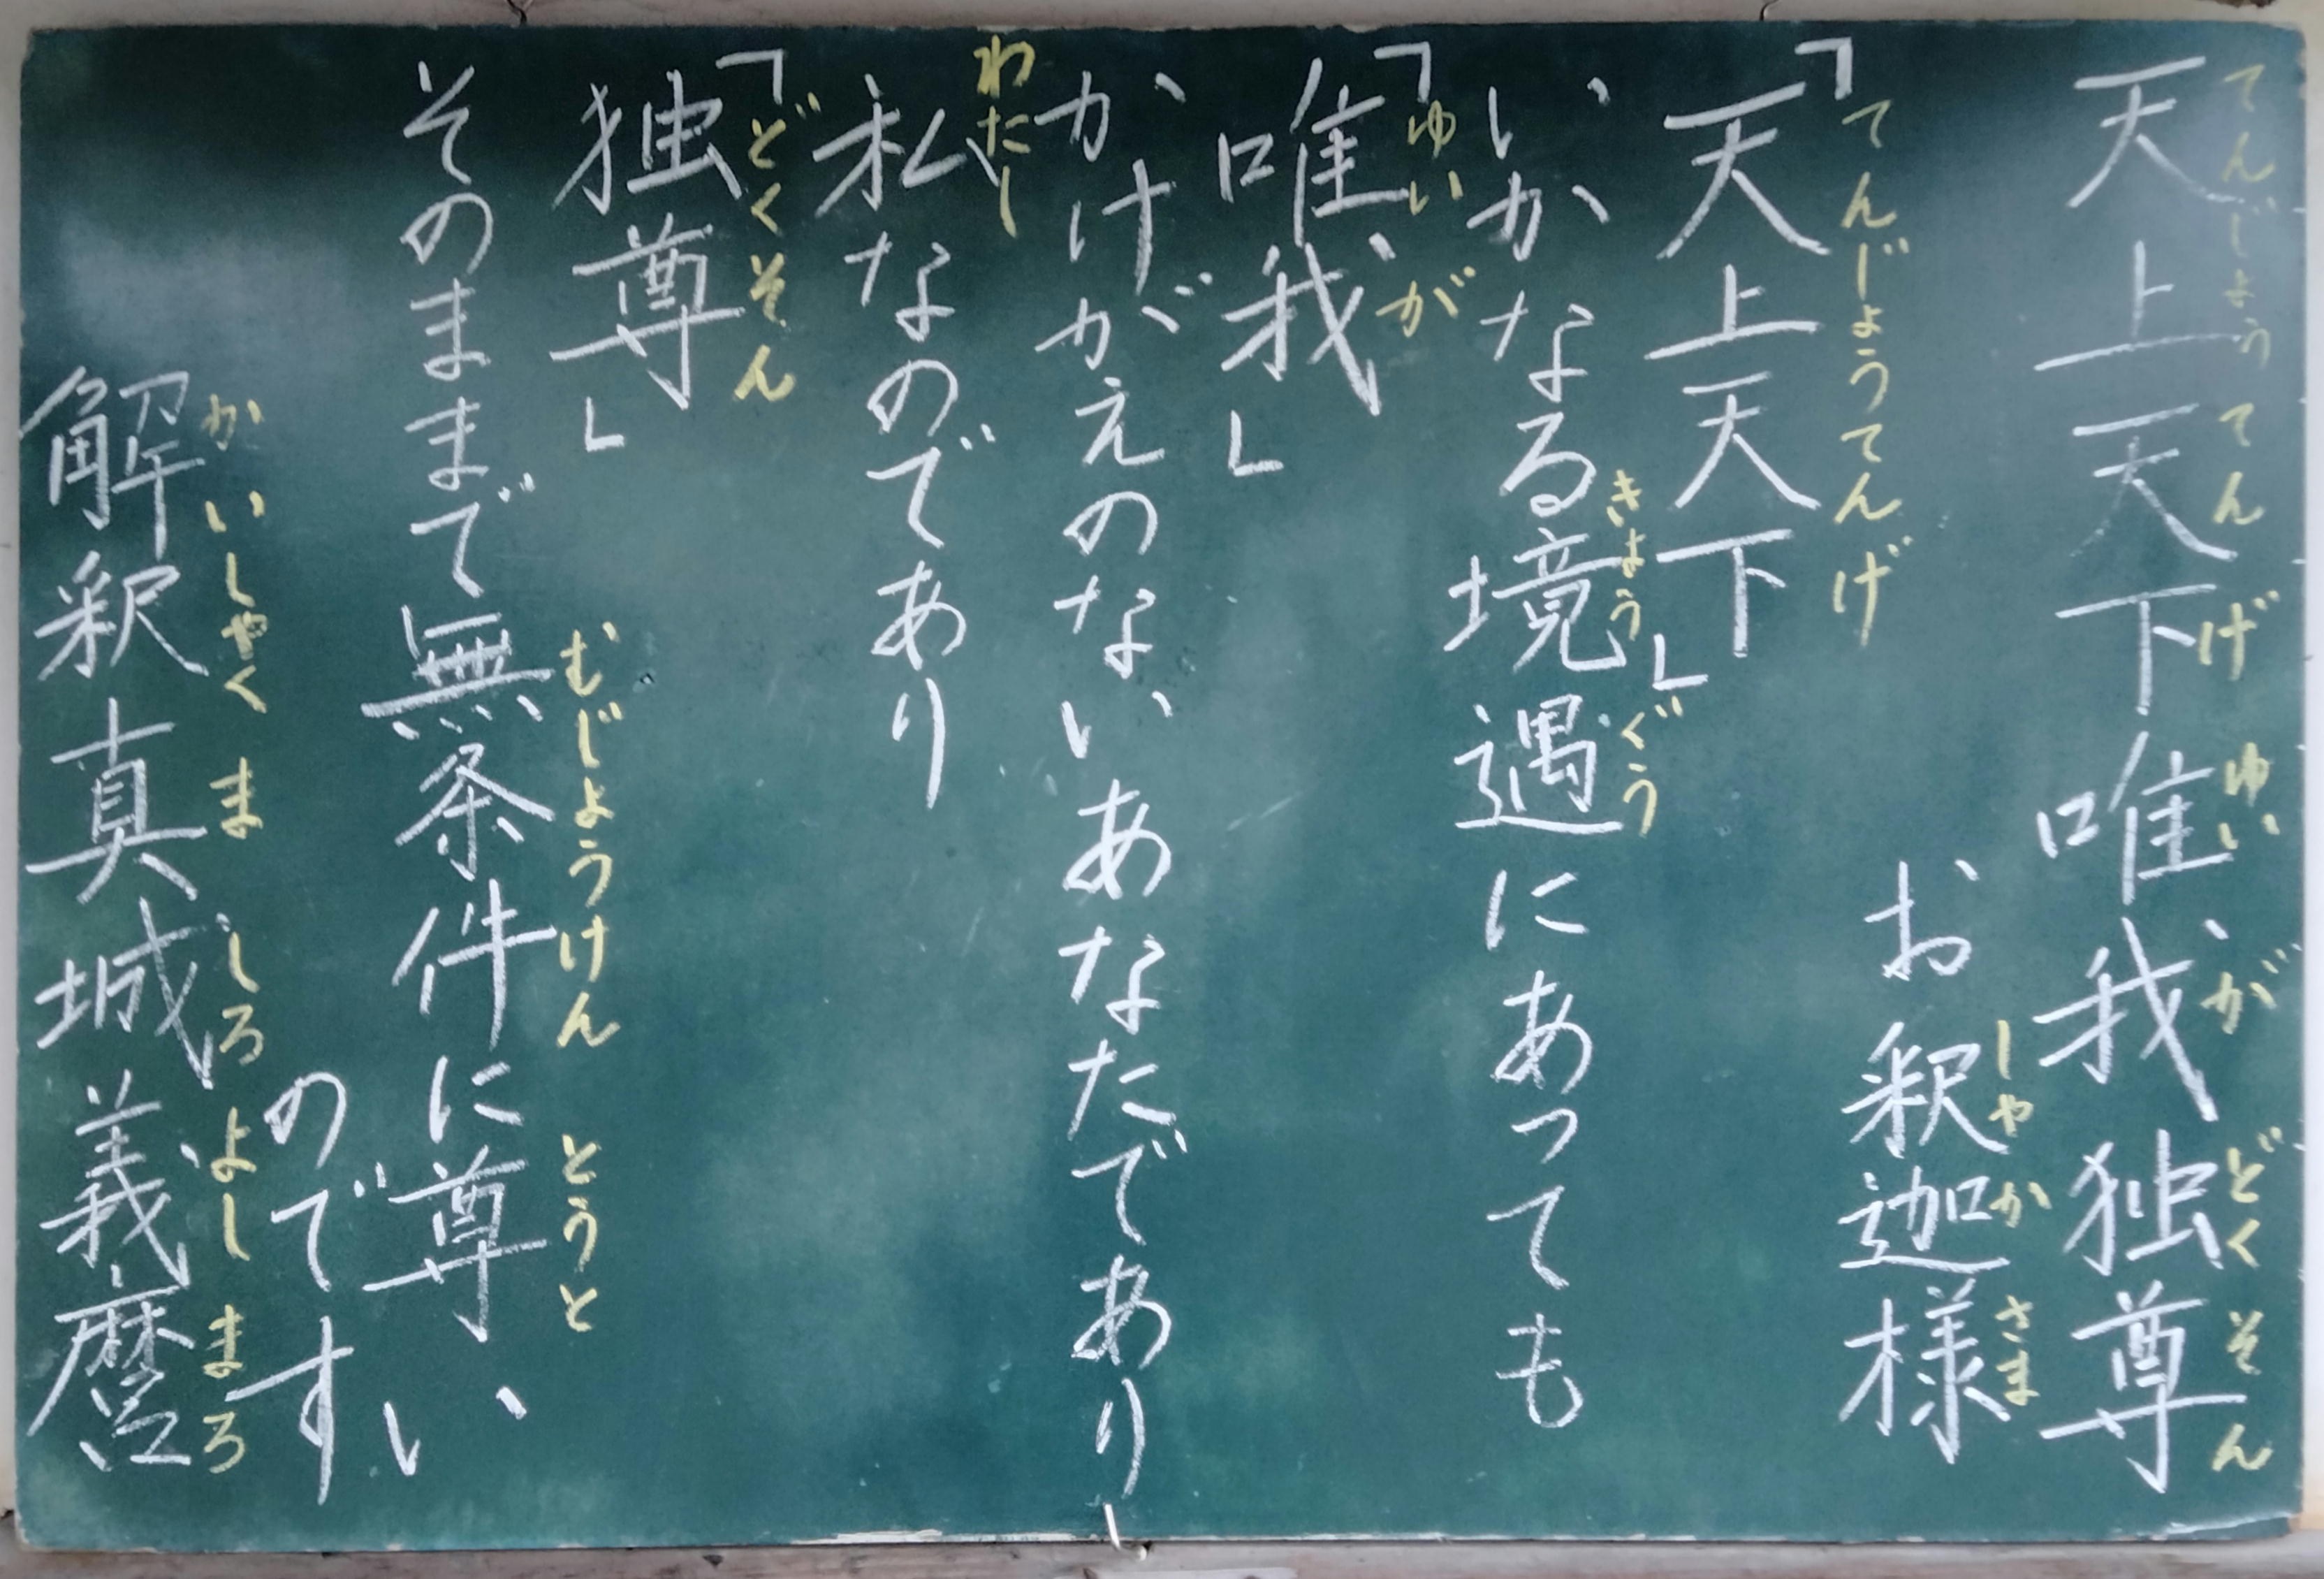 天上天下唯我独尊
てんじょうてんげゆいがどくそん
お釈迦様
しゃかさま
「天上天下」
てんじょうてんげ
いかなる境遇にあっても
きょうぐう
「唯我」
ゆいが
かけがえのないあなたであり
私なのであり
わたし
「独尊」
どくそん
そのままで無条件に尊い
むじょうけん とうと
のです
解釈 真城義麿
かいしゃく ましろよしまろ